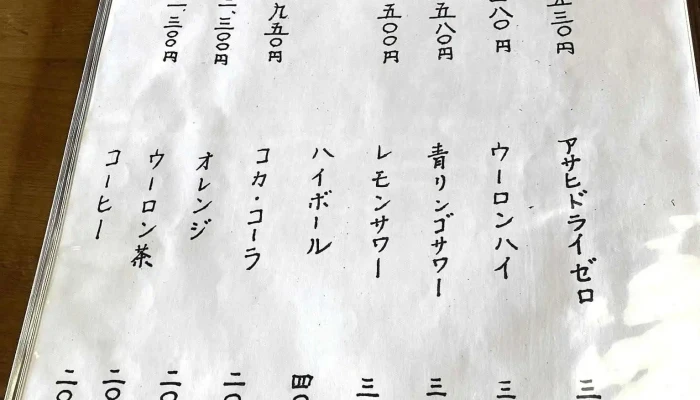 五三〇円
八〇円
五八〇円
五〇〇円
九五〇円
三〇〇円
三〇〇円
アサヒドライゼロ 三
ウーロンハイ 三
青リンゴサワー 三
レモンサワー 三
ハイボール 四
コカ・コーラ 二〇
オレンジ 二〇
ウーロン茶 二〇
コーヒー 二〇